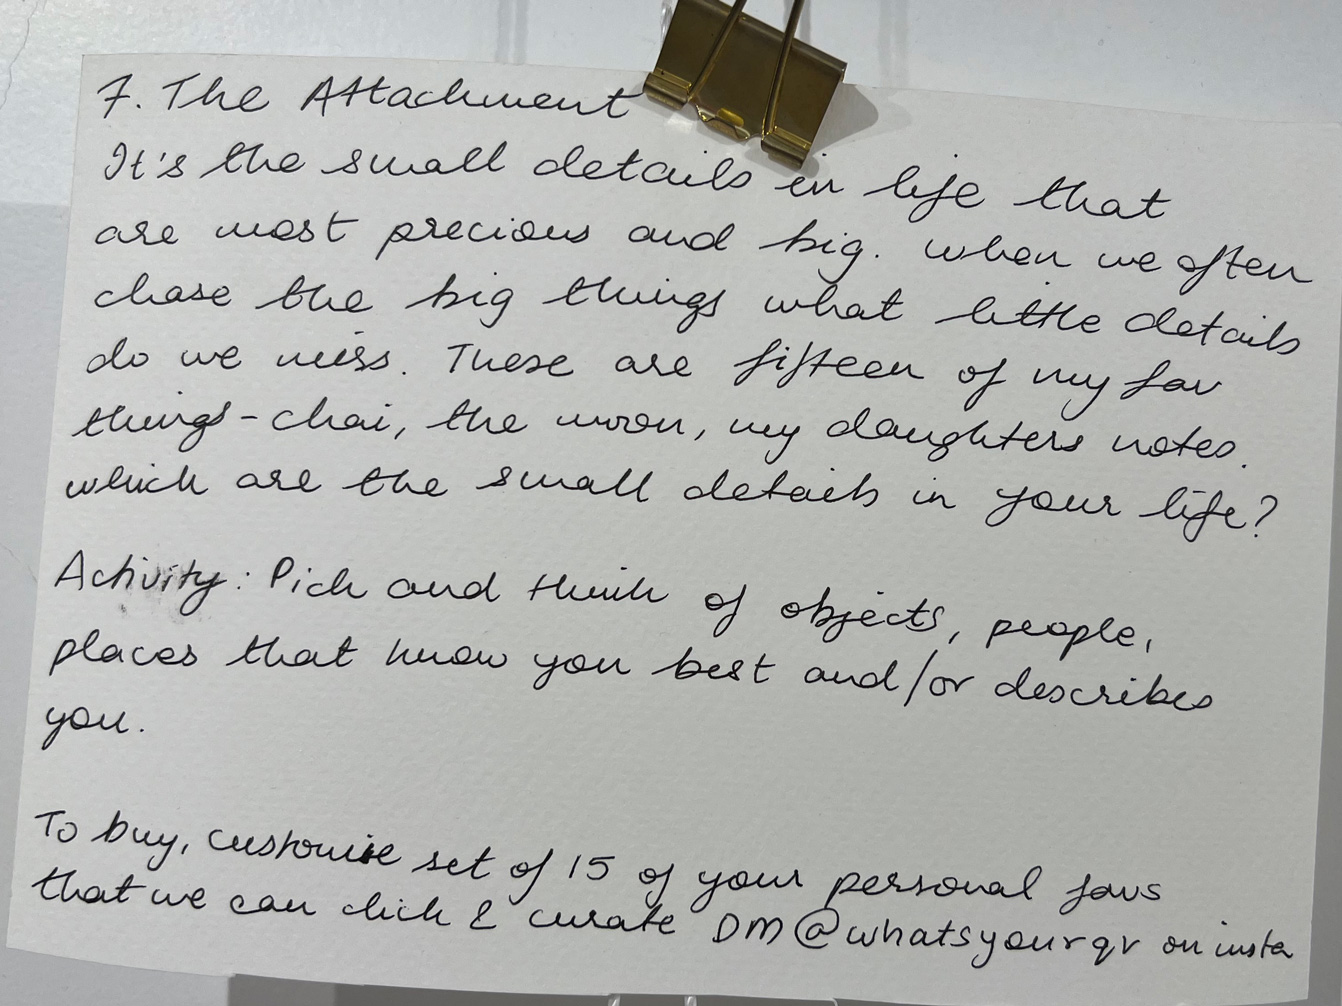 7. The Attachment
It's the small details in life that
are most precious and big. When we often
chase the big things what little details
do we miss. These are fifteen of my fav
things - chai, the moon, my daughters notes.
which are the small details in your life?
Activity: Pick and think of objects, people,
places that know you best and/or describes
you.
To buy, customise set of 15 of your personal favs
that we can click & curate DM @whatsyourqr on insta